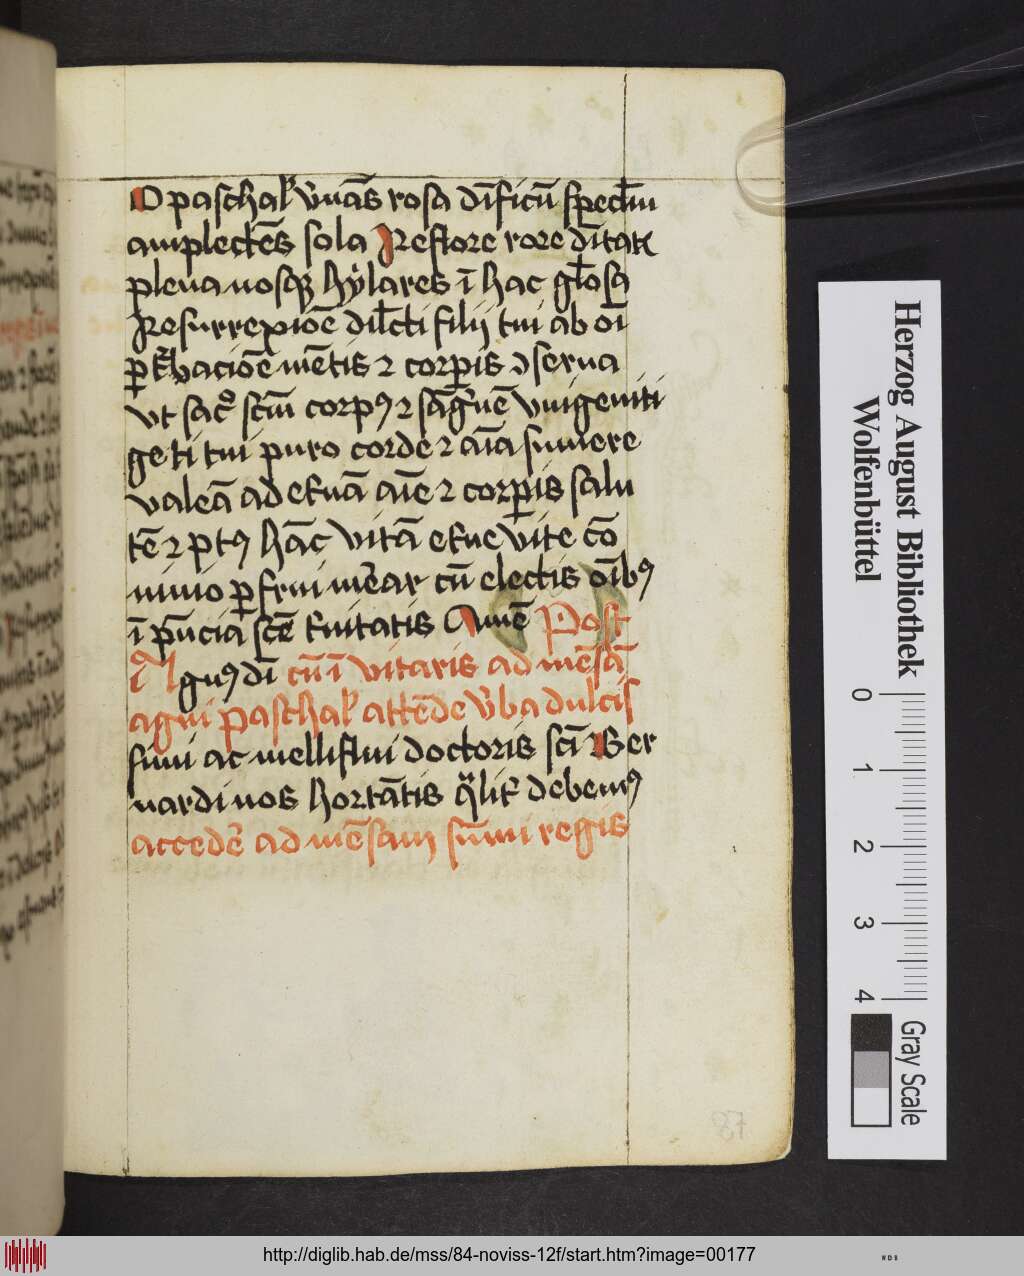 O paschal' v̄nās rosa dīficū specl̄m
amplectēs sola Restore rore dītatꝭ
plena nosqꝫ hẏlares ī hac gl̄osa
Resurrexiōe dil̄cti filij tui ab oī
ꝑt̉bacōe mētis ⁊ corꝑis ꝯserua
vt sac° scm̄ corpꝰ ⁊ sāg̉nē vnigeniti
geti tui puro corde ⁊ aīa sumere
valeā ad et̉nā aīe ⁊ corꝑis salu
tē ⁊ ptꝰ hāc vitā et̉ne vite cō
uiuio ꝑfrui mēar cū electis oībꝰ
ī pn̄cia scē t̉nitatis Amē Post
guꝰdī cū ī vitaris ad mēsā
agni paschal' attēde v̉ba dulcis
simi ac melliflui doctoris scī Ber
nardi nos hortātis qͣlit̉ debemꝰ
accedē ad mēsam sūmi regis
Herzog August Bibliothek
Wolfenbüttel
0 1 2 3 4
Gray Scale
http://diglib.hab.de/mss/84-noviss-12f/start.htm?image=00177